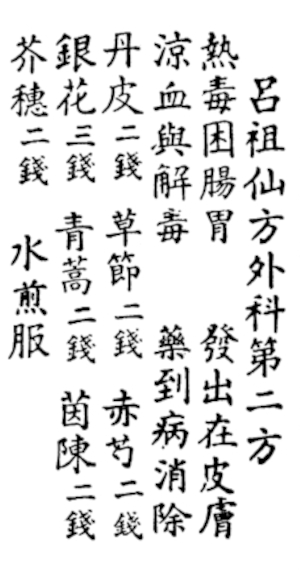 呂祖仙方外科第二方
熱毒困腸胃 發出在皮膚
涼血與解毒 藥到病消除
丹皮二錢 草節二錢 赤芍二錢
銀花三錢 青蒿二錢 茵陳二錢
芥穗二錢 水煎服